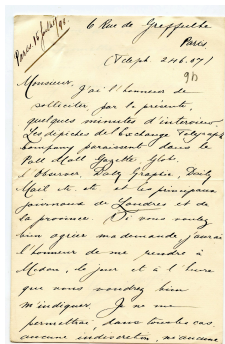 Paris, 16 Juillet/98
6 Rue de Greffulhe
Paris
(Teleph 246.07)
Monsieur,
J'ai l'honneur de
solliciter par la présente,
quelques minutes d'interview.
Les depêches de l'Exchange Telegraph
Company paraissent dans le
Pall Mall Gazette, Globe.
l'Observer, Daily Graphic, Daily
Mail etc. etc et les principaux
journaux de Londres et de
la province. Si vous voulez
bien agréer ma demande j'aurai
l'honneur de me rendre à
Médan, le jour et à l'heure
que vous voudrez bien
m'indiquer. Je ne me
permettrai, dans tous les cas
aucune indiscretion, ni aucune